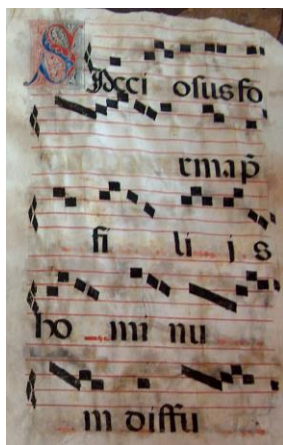 SPeci osus fo
rma p̄
fi li j s
ho mi nu
m diffu